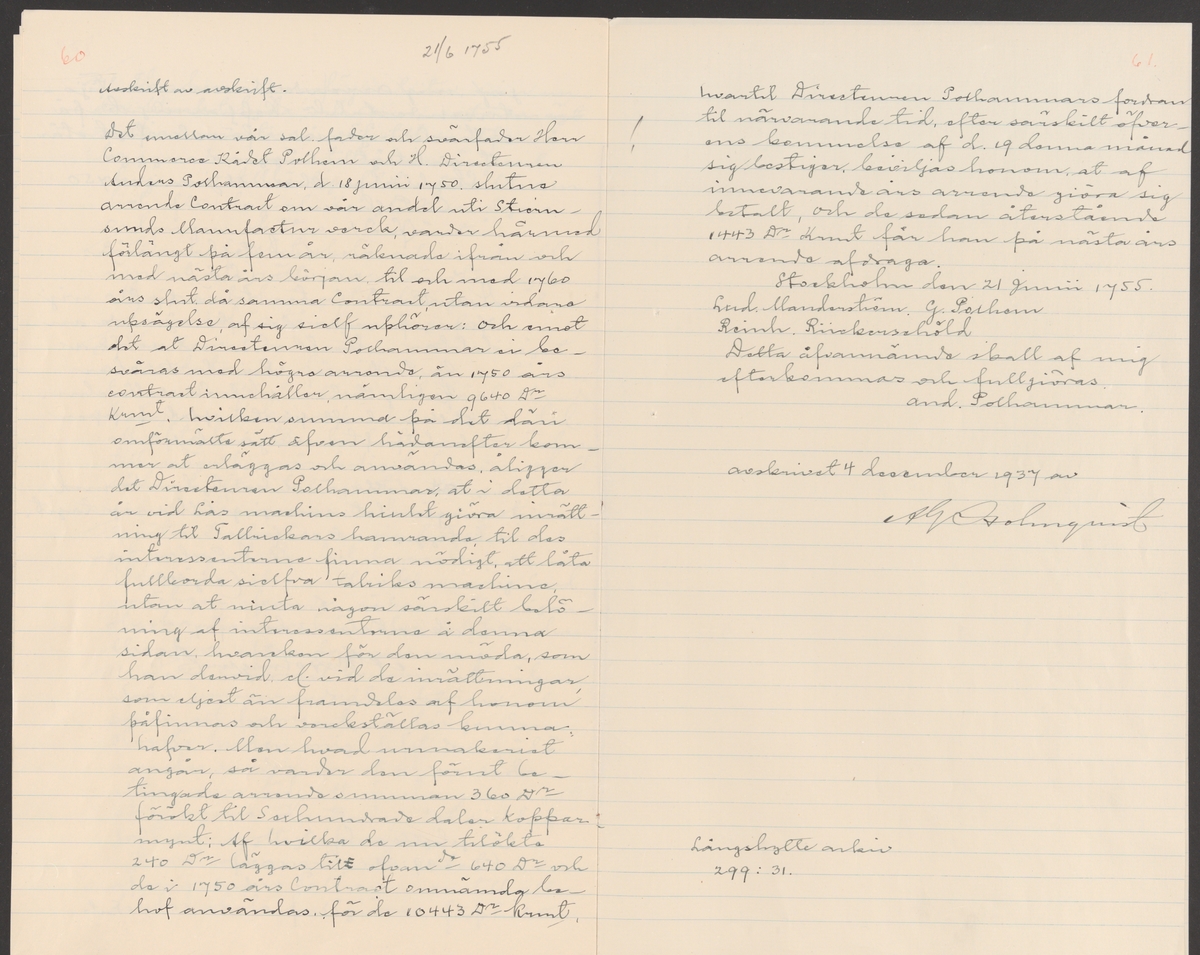 60
21/6 1755
Avskrift av avskrift.
Det emellan vår sal. fader och svärfader Herr
Commerce Rådet Polhem och H. Directeuren
Anders Polhammar, d 18 junii 1750. slutne
arrende Contract om vår andel uti Stiern-
sunds Manufactur verck, varder härmed
förlängt på fem år, räknade ifrån och
med nästa års början til och med 1760
års slut. då samma Contract, utan vidare
upsägelse, af sig sielf uphörer: och emot
det at Directeuren Polhammar ei be-
sväras med högre arrende, än 1750 års
contract innehåller, nämligen 9640 Dr
Krmt. hvilken summa på det däri
omförmälte sätt äfven hädanefter kom-
mer at erläggas och användas, åligger
det Directeuren Polhammar, at i detta
år vid Lås machins huset giöra inrätt-
ning til Tallrickars hamrande, til des
interessenterne finna nödigt, att låta
fullborda sielfva Fabriks machine,
utan at niuta någon särskilt belö-
ning af interessenterne å denna
sidan. hvarcken för den möda, som
han dervid. el. vid de inrättningar,
som eljest än framdeles af honom
påfinnas och verckställas kunna:
hafver. Men hvad urmakeriet
angår, så varder den förut be-
tingade arrende summan 360 Dr
förökt til Sexhundrade daler koppar-
mynt; Af hvilka de nu tilökte
240 Dr läggas till ofvan de 640 Dr och
de i 1750 års Contract omnämda be-
hof användas. för de 10443 Dr krmt.
61.
hvartil Directeuren Polhammars fordran
til närvarande tid, efter särskilt öfver-
ens kommelse af d. 19 denna månad
!
sig bestiger, beviljas honom, at af
innevarande års arrende giöra sig
betalt, och de sedan återstående
1443 Dr Krmt får han på nästa års
arrende afdraga.
Stockholm den 21 Junii 1755.
Lud. Manderström. G. Polhem
Reinh. Rückerschöld
Detta åfvannämde skall af mig
efterkommas och fullgiöras.
And. Polhammar.
avskrivet 4 december 1937 av
Holmqvist
Långshytte arkiv
299: 31.